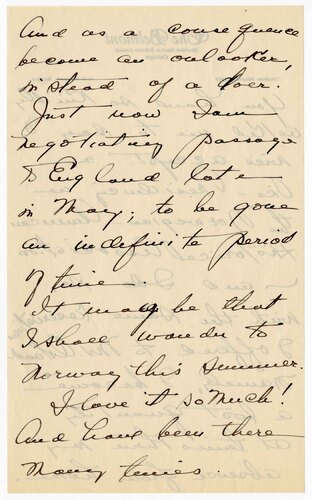 And as a consequence
become an onlooker,
instead of a doer.
Just now I am
negotiating passage
to England late
in May; to be gone
an indefinite period
of time.
It may be that
I shall wander to
Norway this summer.
I love it so much!
And have been there
many times.
The Belmont